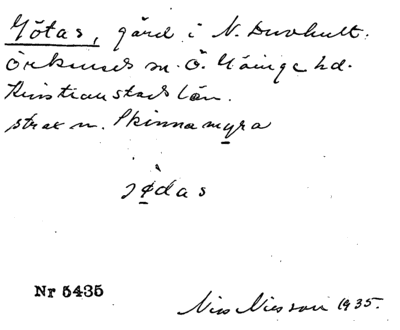 Götas, gård i N. Duvhult.
Örkeneds sn. Ö. Göinge hd.
Kristianstads län.
strax n. Skinnamyra
jødas
Nr 5435
Nils Nilsson 1935.